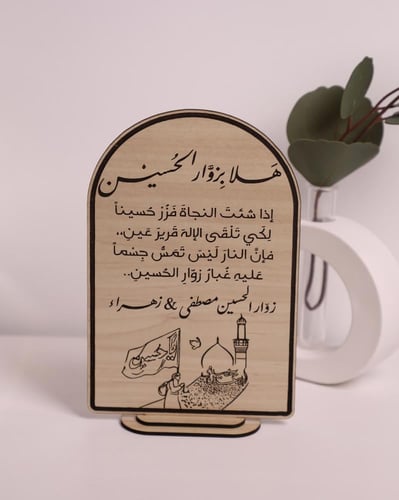 هَلا بِزوَّار الحُسين
إذا شئتَ النجاةَ فَزُرْ حُسيناً
لِكَي تَلْقَى الإلهَ قَريرَ عَينِ،،
فإنَّ النارَ لَيْسَ تَمَسُّ جِسْماً
عَليهِ غُبارُ زوّارِ الحُسينِ..
زوّار الحسين مصطفى & زهراء